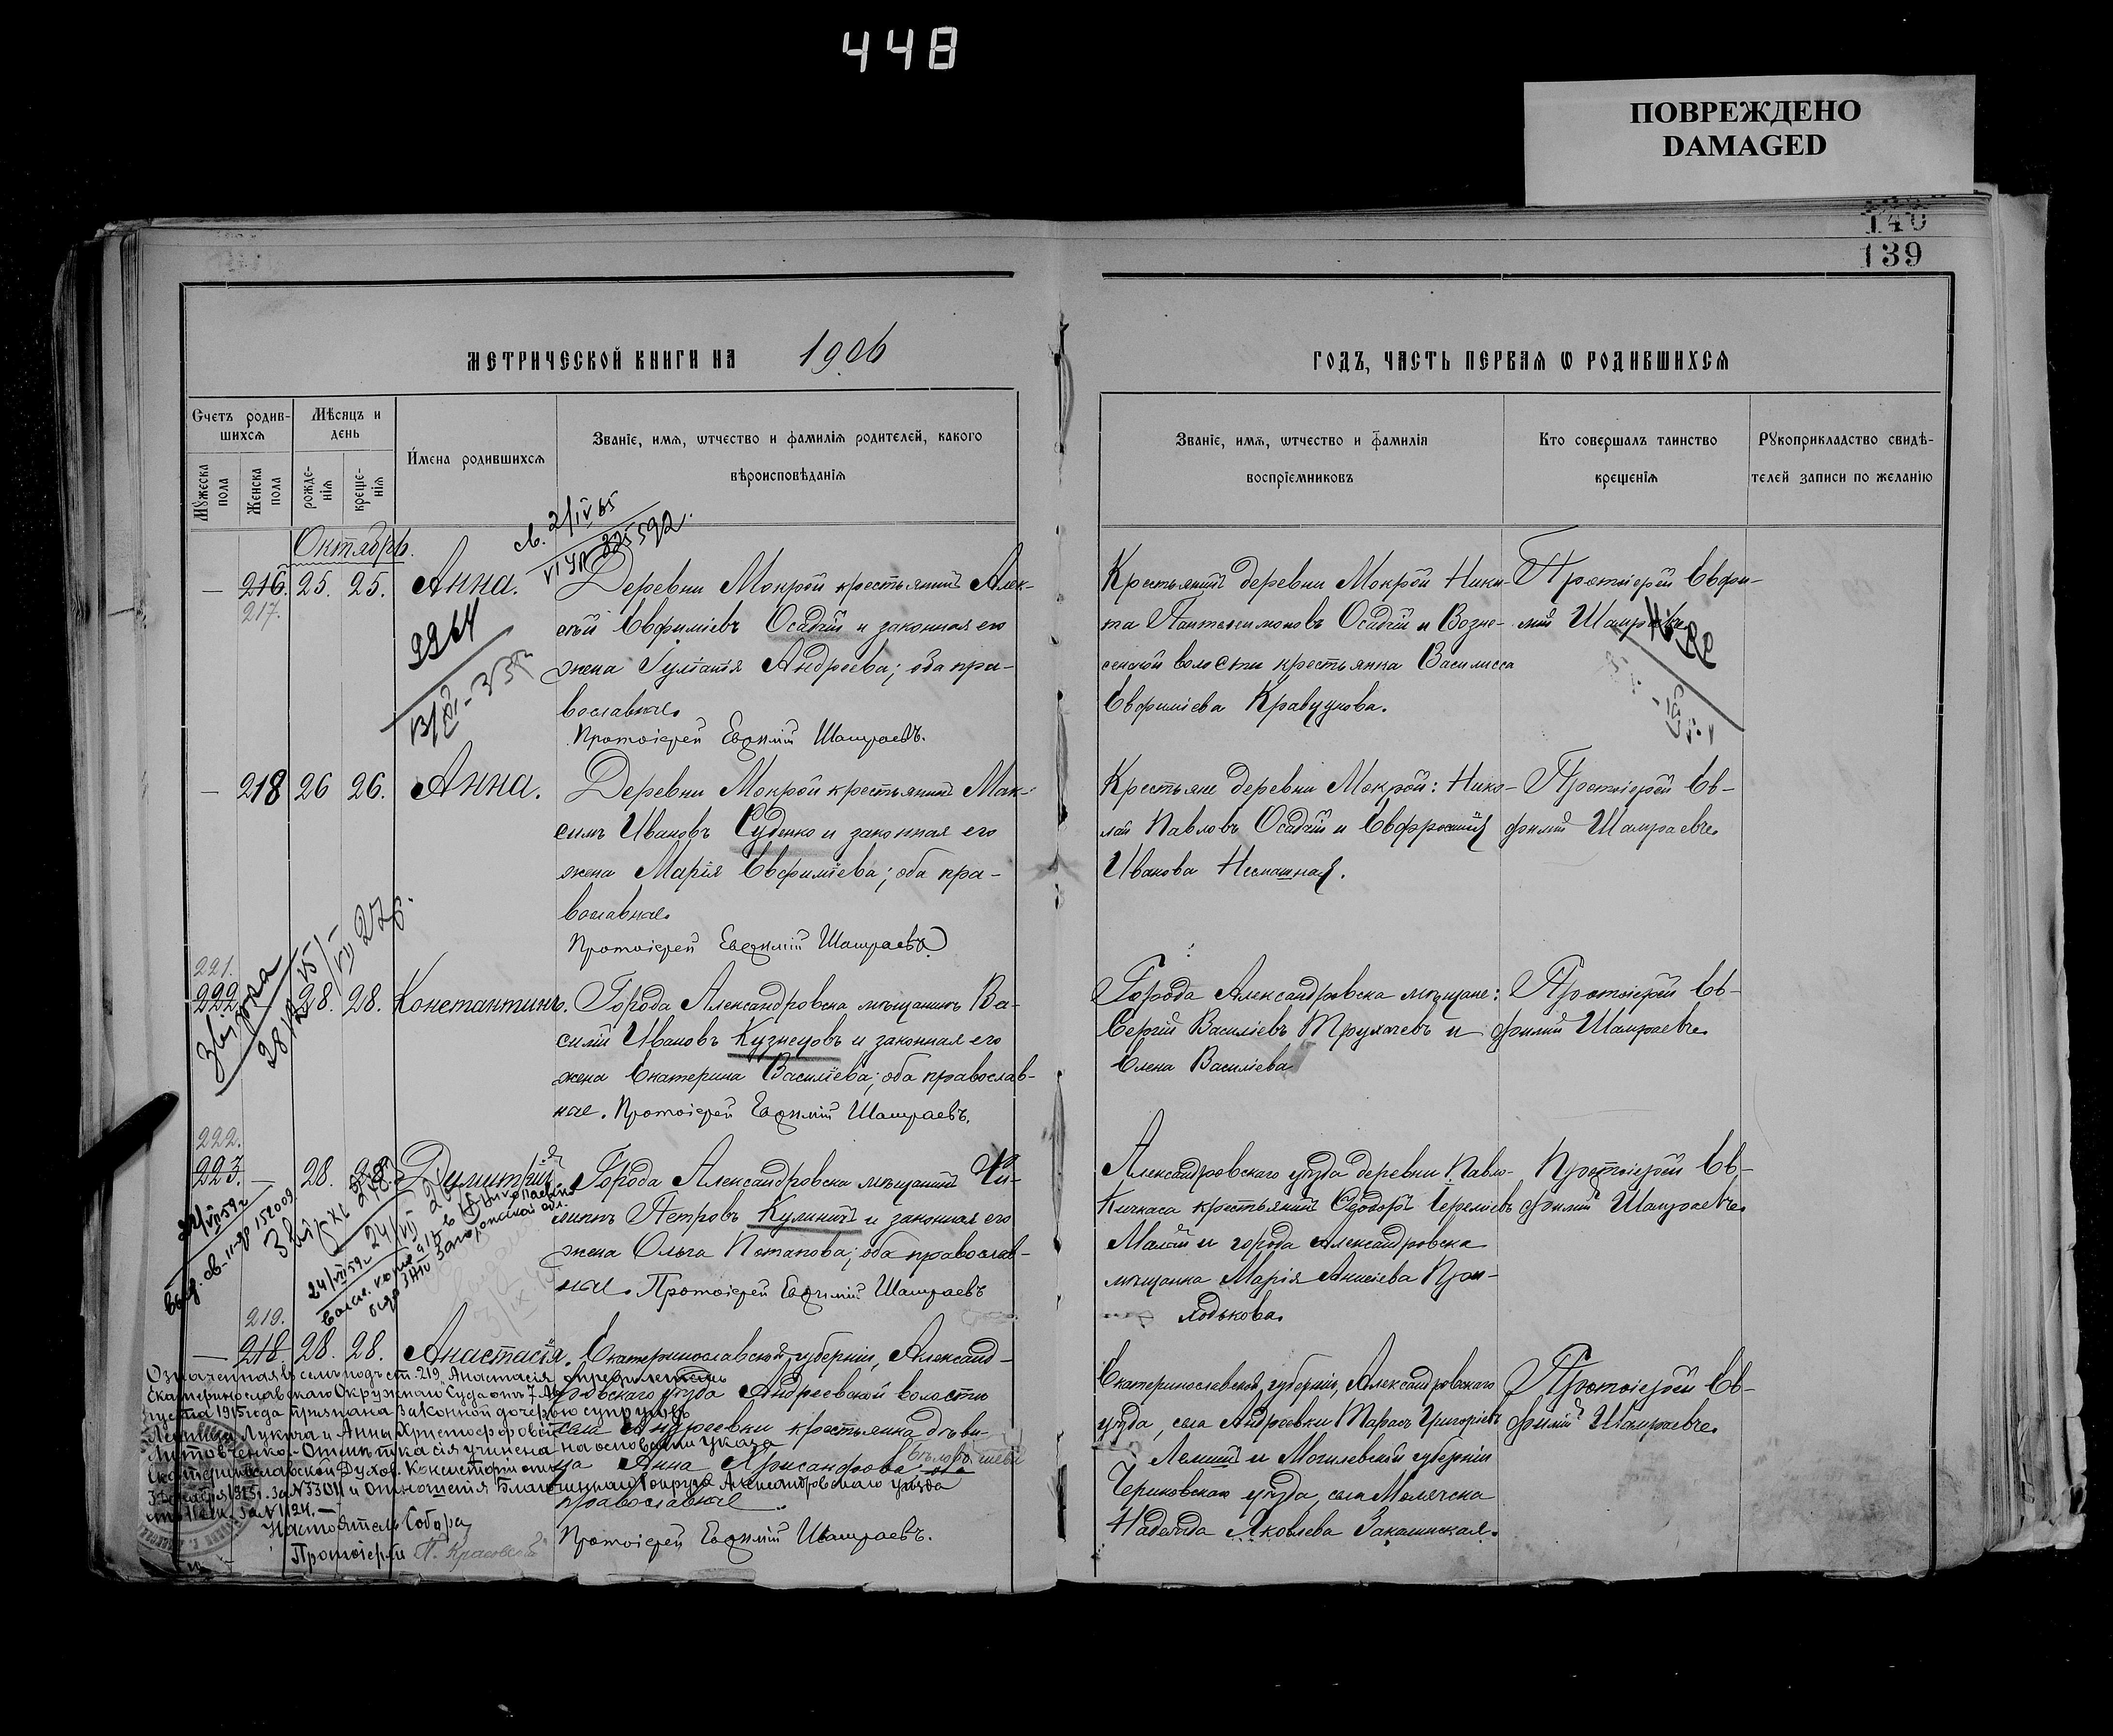 448
ПОВРЕЖДЕНО
DAMAGED
140
139
МЕТРИЧЕСКОЙ КНИГИ НА 1906
ГОДЪ, ЧАСТЬ ПЕРВАѦ Ѡ РОДИВШИХСѦ
Счетъ родив-
шихсѧ
Мѣсяцъ и
день
Мꙋжеска
пола
Женска
пола
рожде-
нїѧ
креще-
нїѧ
Имена родившихсѧ
Званїе, имѧ, ѿчество и фамилїѧ родителей, какого
вѣроисповѣданїѧ
Званїе, имѧ, ѿчество и фамилїѧ
воспрїемниковъ
Кто совершалъ таинство
крещенїѧ
Рꙋкоприкладство свидѣ-
телей записи по желанїю
св. 2/IV 65
Октябрь.
— 216. 25. 25. Анна.
217.
Деревни Мокрой крестьянинъ Алек-
сѣй Евфиміевъ Осадчій и законная его
жена Іуліанія Андреева; оба пра-
вославные.
Протоіерей Евфимій Шамраевъ.
Крестьянинъ деревни Мокрой Ники-
та Пантелимоновъ Осадчій и Возне-
сенской волости крестьянка Василисса
Евфиміева Кравцунова.
Протоіерей Евфи-
мій Шамраевъ
2264
— 218 26 26. Анна.
Деревни Мокрой крестьянинъ Мак-
симъ Ивановъ Суденко и законная его
жена Марія Евфиміева; оба пра-
вославные.
Протоіерей Евфимій Шамраевъ
Крестьяне деревни Мокрой: Нико-
лай Павловъ Осадчій и Евфросинія
Иванова Несмашная.
Протоіерей Ев-
фимій Шамраевъ.
221.
222 28. 28. Константинъ.
Города Александровска мѣщанинъ Ва-
силій Ивановъ Кузнецовъ и законная его
жена Екатерина Василіева; оба православ-
ные. Протоіерей Евфимій Шамраевъ.
Города Александровска мѣщане:
Сергій Василіевъ Трухачевъ и
Елена Василіева
Протоіерей Ев-
фимій Шамраевъ.
222.
223. — 28. 28. Димитрій.
Города Александровска мѣщанинъ Фи-
липпъ Петровъ Кулиничъ и законная его
жена Ольга Потапова; оба православ-
ные. Протоіерей Евфимій Шамраевъ
Александровскаго уѣзда деревни Павло-
Кичкаса крестьянинъ Ѳеодоръ Іереміевъ
Малый и города Александровска
мѣщанка Марія Анисіева При-
ходькова.
Протоіерей Ев-
фимій Шамраевъ.
24/VII 59г.
219.
— 218 28. 28. Анастасія.
Екатеринославской губерніи, Александ-
ровскаго уѣзда Андреевской волости
села Андреевки крестьянка дѣви-
ца Анна Хрисанфова
православные
Протоіерей Евфимій Шамраевъ.
Екатеринославской губерніи, Александровскаго
уѣзда, села Андреевки Тарасъ Григоріевъ
и Могилевской губерніи
Чериковскаго уѣзда, села Молячска
Надежда Яковлева Закашиская.
Протоіерей Ев-
фимій Шамраевъ.
Означенная въ семъ подъ ст. 219, Анастасія опредѣленіемъ
Екатеринославскаго Окружнаго Суда отъ 7 Ав-
густа 1915 года признана законной дочерью супруговъ
Лукича и Анны Христофоровой
Литовченко. Отмѣтка сія учинена на основаніи указа
Екатеринославской Духов. Консисторіи отъ
и отношенія Благочиннаго 1 округа Александровскаго уѣзда
за №1124. —
Настоятель Собора
Протоіерей П. Красовскій